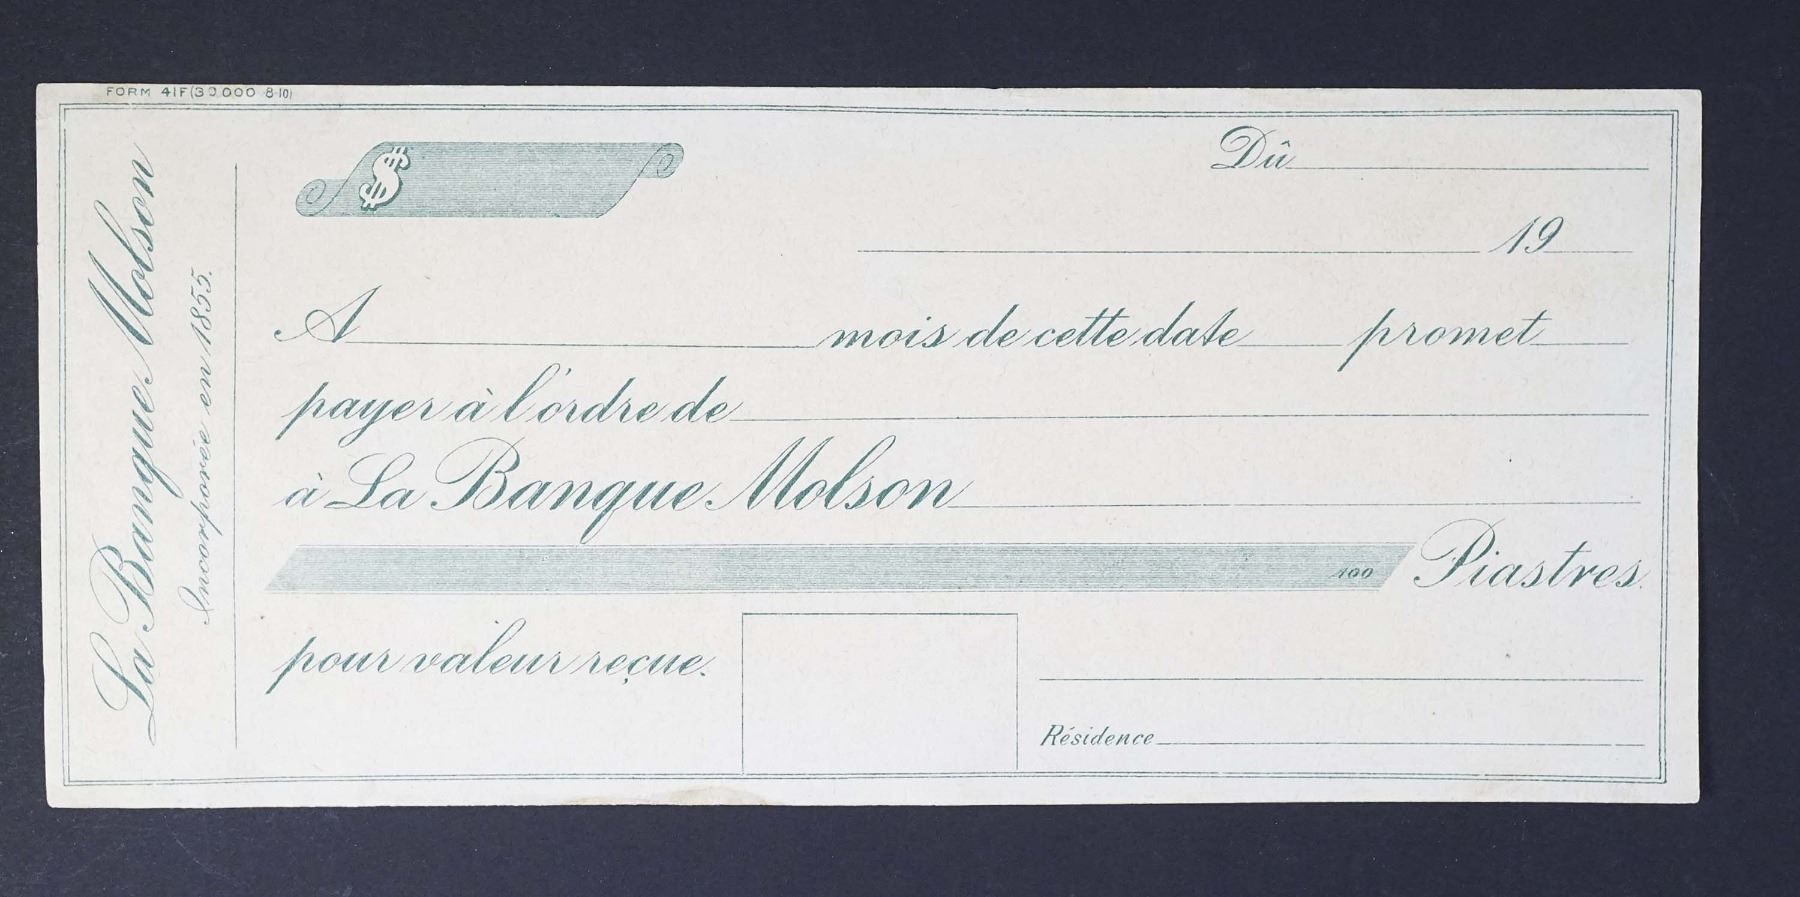 FORM 41F (30,000 8-10)
La Banque Molson
Incorporée en 1855.
$
Dû
19
A mois de cette date promet
payer à l'ordre de
à La Banque Molson
100 Piastres.
pour valeur reçue.
Résidence